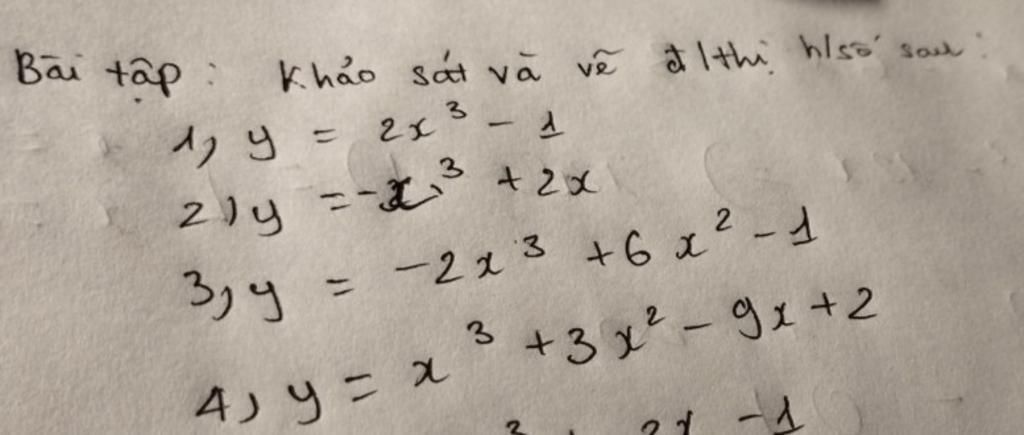 Bài tập : Khảo sát và vẽ đ/thị h/số sau :
1, y = 2x³ - 1
2, y = -x³ + 2x
3, y = -2x³ + 6x² - 1
4, y = x³ + 3x² - 9x + 2
2x - 1